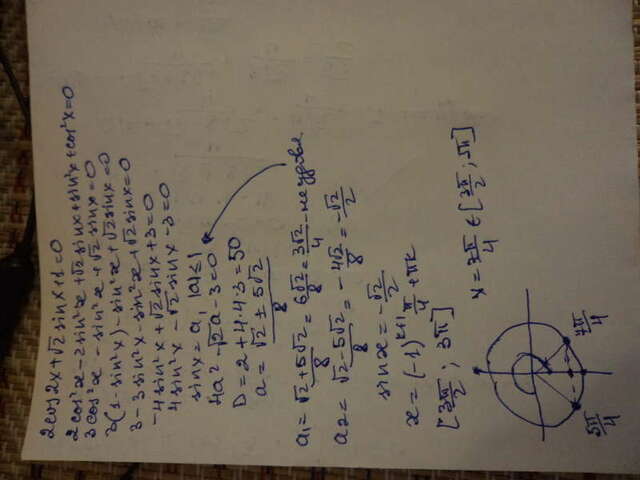 2cos2x+√2sinx+1=0
2cos²x-2sin²x+√2sinx+sin²x+cos²x=0
3cos²x-sin²x+√2sinx=0
3(1-sin²x)-sin²x+√2sinx=0
3-3sin²x-sin²x+√2sinx=0
-4sin²x+√2sinx+3=0
4sin²x-√2sinx-3=0
sinx=a, |a|≤1
4a²-√2a-3=0
D=2+4·4·3=50
a=(√2±5√2)/8
a₁=(√2+5√2)/8=6√2/8=3√2/4-не удовл
a₂=(√2-5√2)/8=-4√2/8=-√2/2
sinx=-√2/2
x=(-1)^(k+1) π/4+πk
[3π/2; 3π]
x=7π/4 ∈ [3π/2; 3π]
7π/4
5π/4